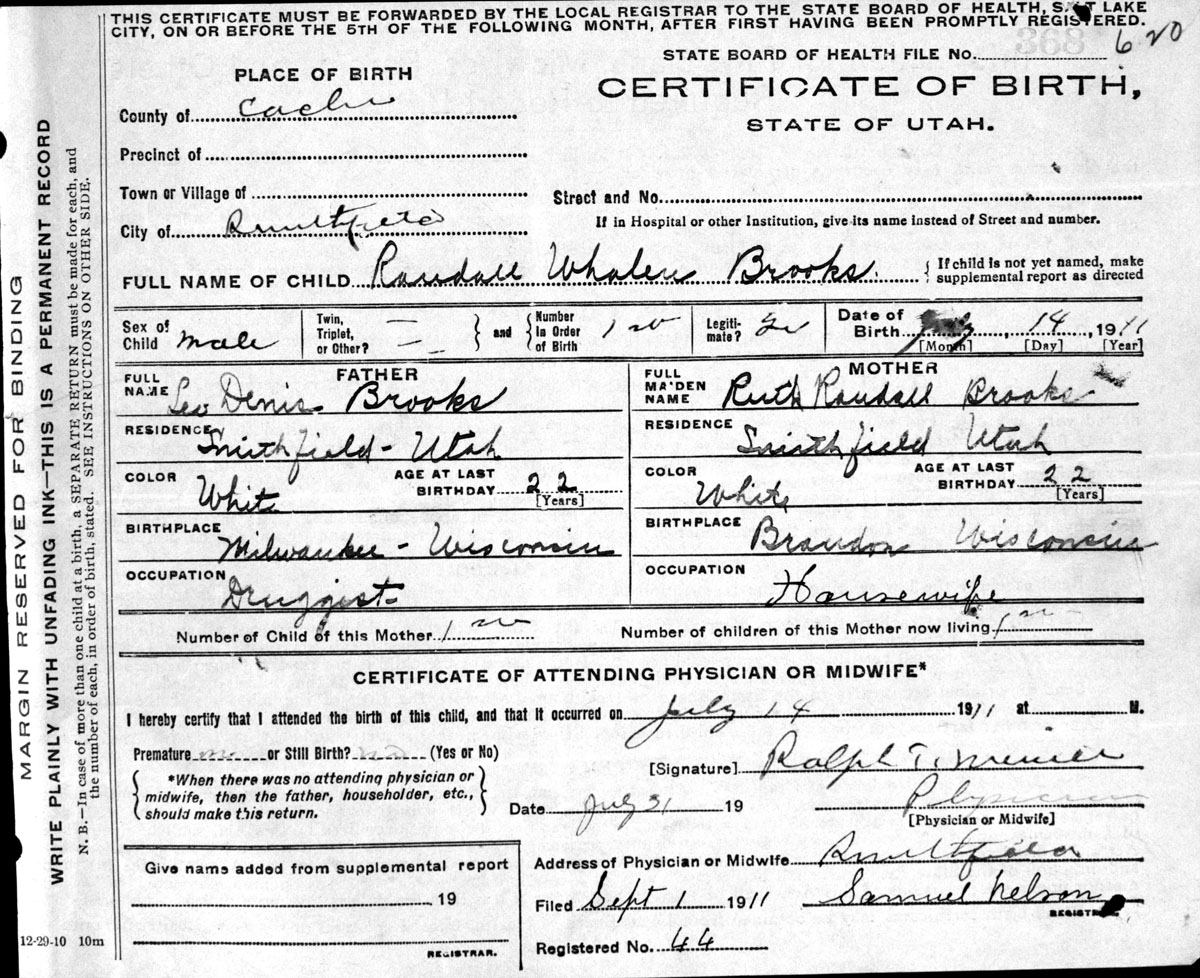 THIS CERTIFICATE MUST BE FORWARDED BY THE LOCAL REGISTRAR TO THE STATE BOARD OF HEALTH, S LT LAKE
CITY, ON OR BEFORE THE 5TH OF THE FOLLOWING MONTH, AFTER FIRST HAVING BEEN PROMPTLY REGISTERED.
STATE BOARD OF HEALTH FILE No. 620
PLACE OF BIRTH
CERTIFICATE OF BIRTH,
STATE OF UTAH.
County of Cache
Precinct of
Town or Village of
Street and No.
City of Smithfield
If in Hospital or other Institution, give its name instead of Street and number.
FULL NAME OF CHILD Randall Whalen Brooks.
{ If child is not yet named, make
supplemental report as directed
Sex of
Child Male
Twin,
Triplet,
or Other?
and
Number
in Order
of Birth
Legiti-
mate?
Date of
Birth July 14, 1911
[Month] [Day] [Year]
FATHER
FULL
NAME Leo Denis Brooks
RESIDENCE Smithfield - Utah
COLOR White
AGE AT LAST
BIRTHDAY 22
[Years]
BIRTHPLACE Milwaukee - Wisconsin
OCCUPATION Druggist
MOTHER
FULL
MAIDEN
NAME Ruth Randall Brooks
RESIDENCE Smithfield Utah
COLOR White
AGE AT LAST
BIRTHDAY 22
[Years]
BIRTHPLACE Brandon Wisconsin
OCCUPATION Housewife
Number of Child of this Mother 1
Number of children of this Mother now living 1
CERTIFICATE OF ATTENDING PHYSICIAN OR MIDWIFE*
I hereby certify that I attended the birth of this child, and that it occurred on July 14 1911 at M.
Premature no or Still Birth? no (Yes or No)
*When there was no attending physician or
midwife, then the father, householder, etc.,
should make this return.
[Signature] Ralph T.
Date July 31 19
Physician
[Physician or Midwife]
Address of Physician or Midwife Smithfield
Filed Sept 1 1911 Samuel Nelson
REGISTRAR.
Registered No. 44
Give name added from supplemental report
19
REGISTRAR.
12-29-10 10m
MARGIN RESERVED FOR BINDING
WRITE PLAINLY WITH UNFADING INK—THIS IS A PERMANENT RECORD
N. B.—In case of more than one child at a birth, a SEPARATE RETURN must be made for each, and
the number of each, in order of birth, stated. SEE INSTRUCTIONS ON OTHER SIDE.